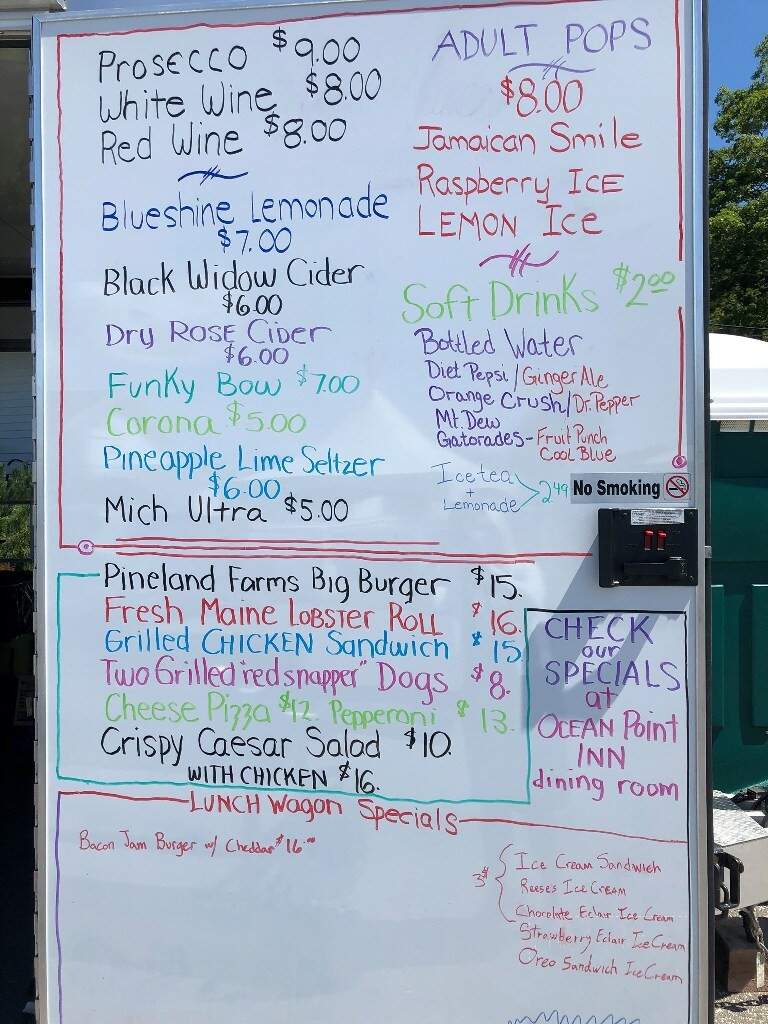 Prosecco $9.00
White Wine $8.00
Red Wine $8.00
Blueshine Lemonade
$7.00
Black Widow Cider
$6.00
Dry Rose Cider
$6.00
Funky Bow $7.00
Corona $5.00
Pineapple Lime Seltzer
$6.00
Mich Ultra $5.00
ADULT POPS
$8.00
Jamaican Smile
Raspberry ICE
LEMON Ice
Soft Drinks $2.00
Bottled Water
Diet Pepsi/Ginger Ale
Orange Crush/Dr. Pepper
Mt. Dew
Gatorades-Fruit Punch
Cool Blue
Ice tea
+
Lemonade
2.49
No Smoking
Pineland Farms Big Burger $15.
Fresh Maine Lobster Roll $16.
Grilled CHICKEN Sandwich $15
Two Grilled "red snapper" Dogs $8.
Cheese Pizza $12. Pepperoni $13.
Crispy Caesar Salad $10.
WITH CHICKEN $16.
CHECK
our
SPECIALS
at
OCEAN Point
INN
dining room
LUNCH Wagon Specials
Bacon Jam Burger w/ Cheddar $16.00
3$
Ice Cream Sandwich
Reeses Ice Cream
Chocolate Eclair Ice Cream
Strawberry Eclair Ice Cream
Oreo Sandwich Ice Cream